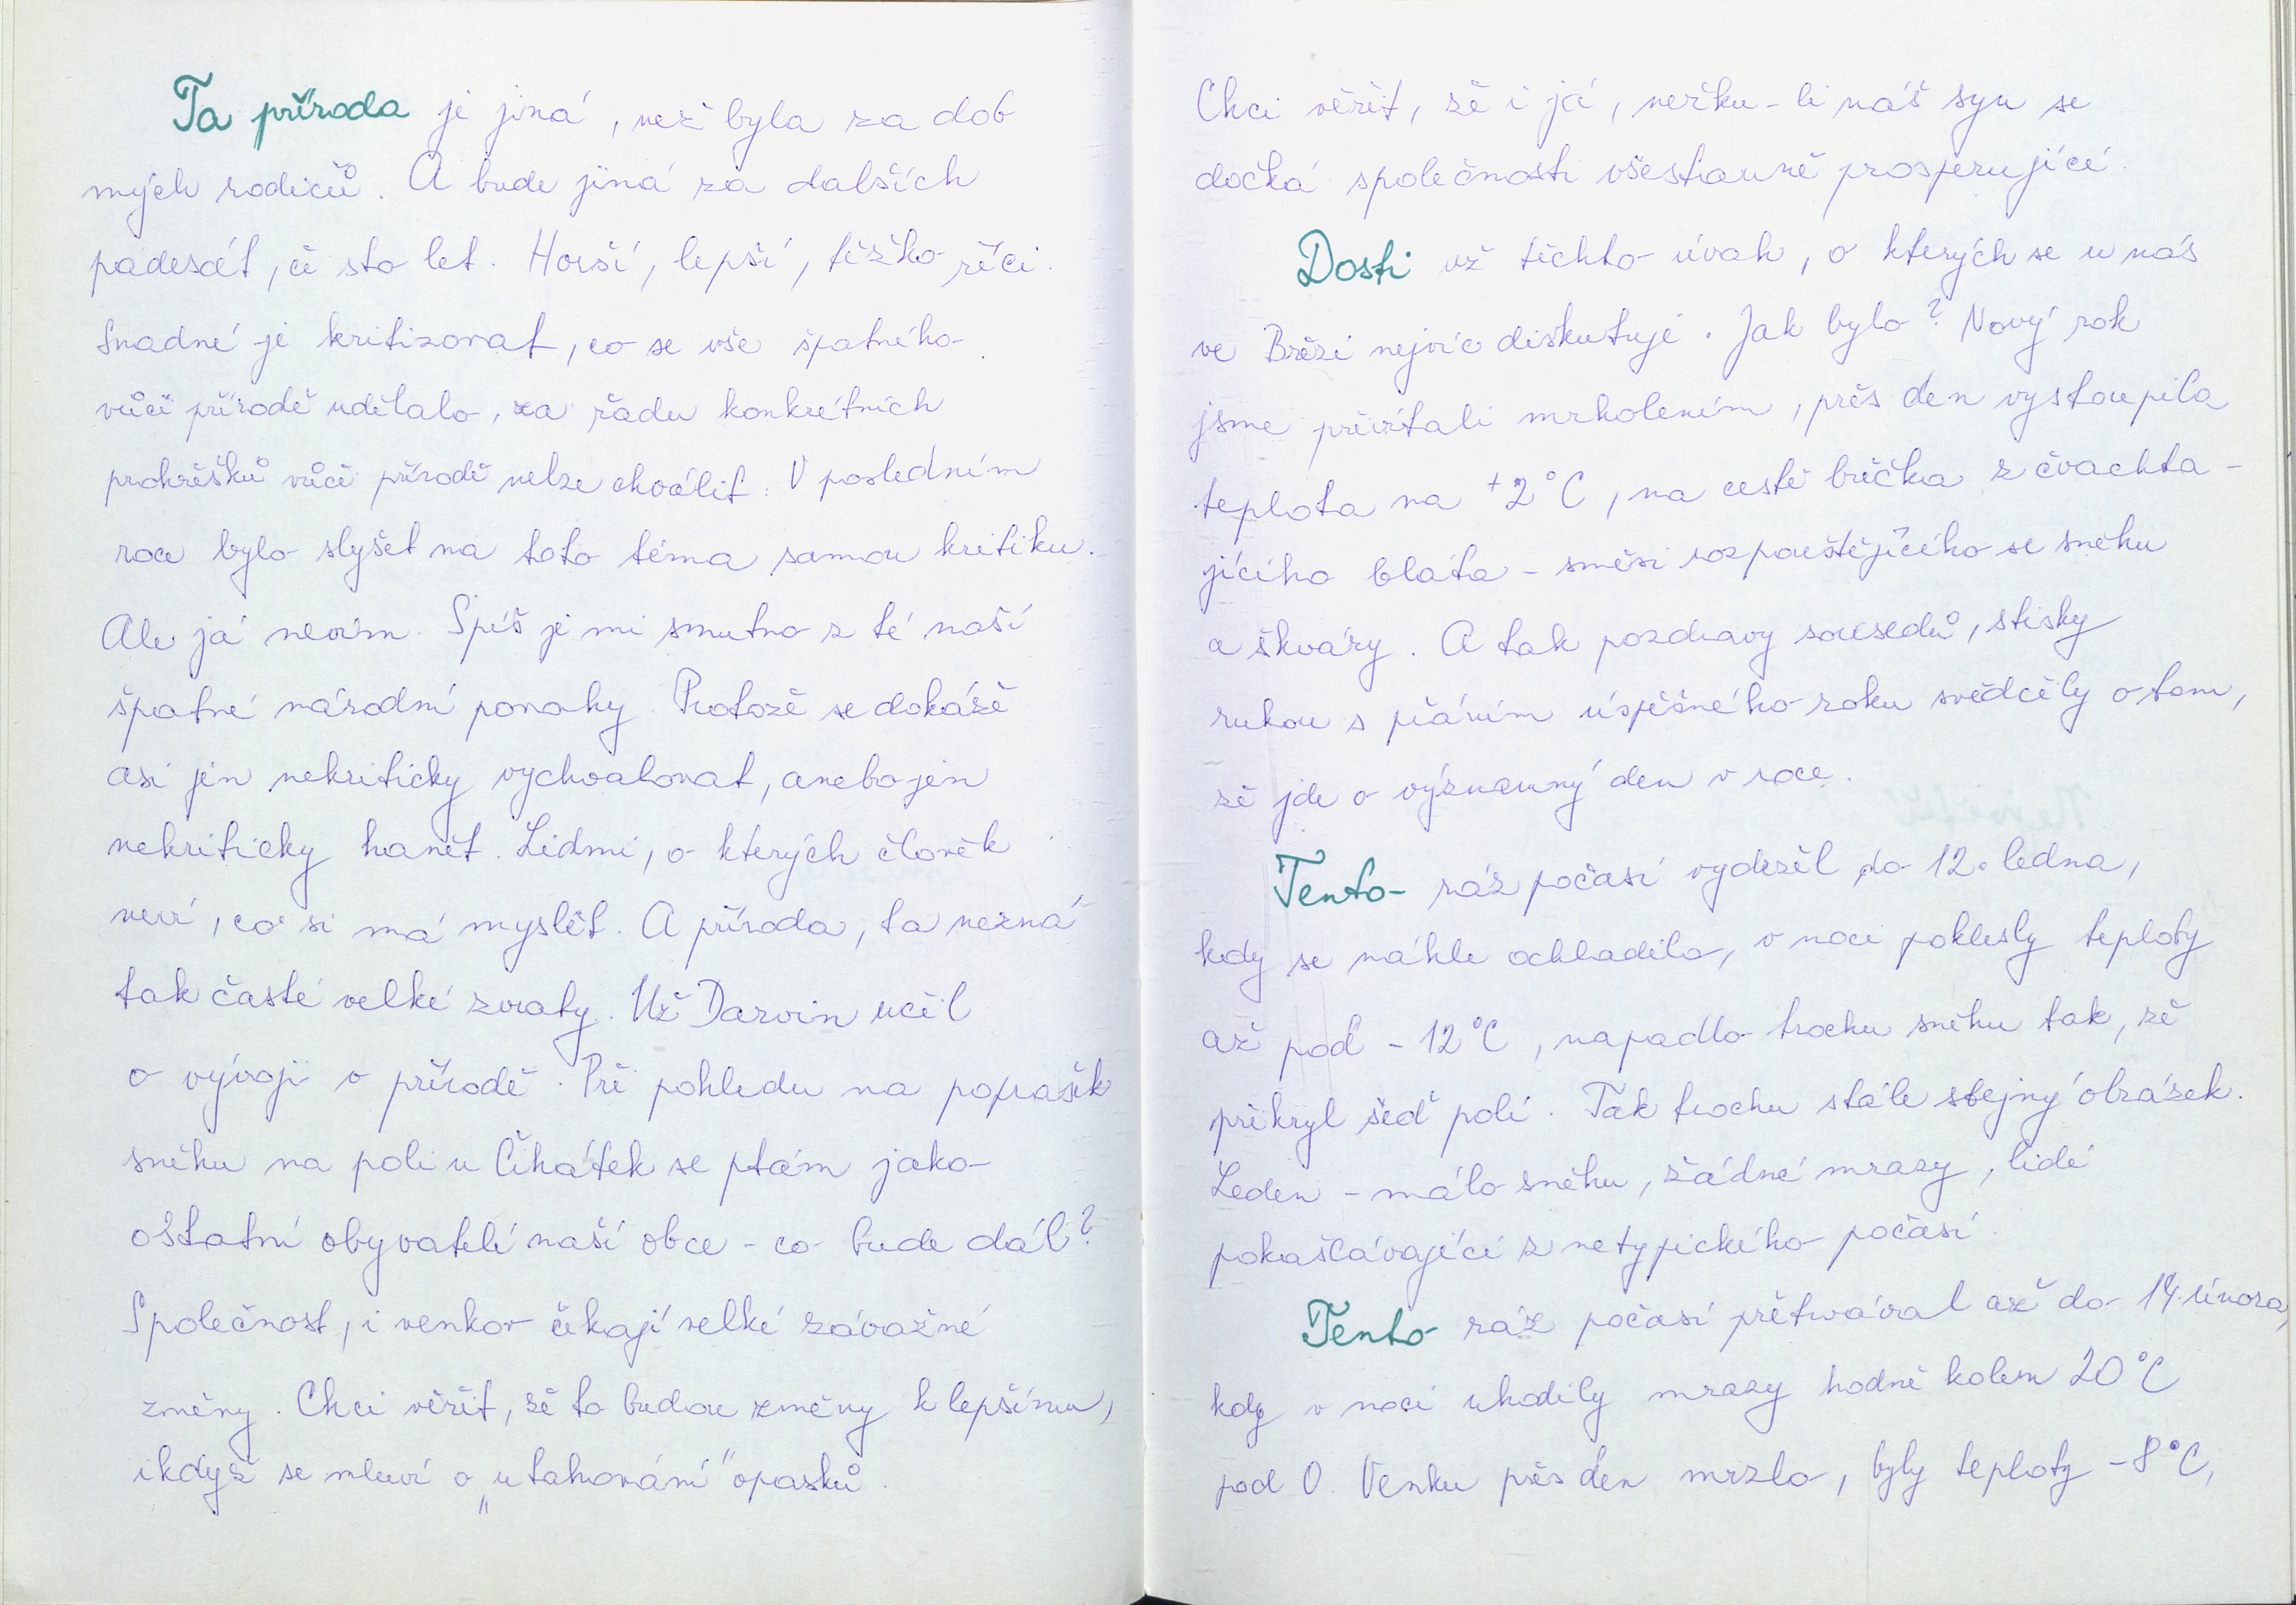 Ta příroda je jiná, než byla za dob
mých rodičů. A bude jiná za dalších
padesát, či sto let. Horší, lepší, těžko říci.
Snadné je kritizovat, co se vše špatného
vůči přírodě udělalo, za řadu konkrétních
prohřešků vůči přírodě nelze chválit. V posledním
roce bylo slyšet na toto téma samou kritiku.
Ale já nevím. Spíš je mi smutno z té naší
špatné národní povahy. Protože se dokáže
asi jen nekriticky vychvalovat, anebo jen
nekriticky hanět. Lidmi, o kterých člověk
neví, co si má myslet. A příroda, ta nezná
tak časté velké zvraty. Už Darvin učil
o vývoji v přírodě. Při pohledu na poprašek
sněhu na poli u Čihátek se ptám jako
ostatní obyvatelé naší obce - co bude dál?
Společnost, i venkov čekají velké závažné
změny. Chci věřit, že to budou změny k lepšímu,
ikdyž se mluví o „utahování" opasků.
Chci věřit, že i já, neřku-li náš syn se
dočká společnosti všestranně prosperující.
Dosti už těchto úvah, o kterých se u nás
ve Březí nejvíc diskutuje. Jak bylo? Nový rok
jsme přivítali mrholením, přes den vystoupila
teplota na +2°C, na cestě břečka z čvachta-
jícího bláta - směsi rozpouštějícího se sněhu
a škváry. A tak pozdravy sousedů, stisky
rukou s přáním úspěšného roku svědčily o tom,
že jde o významný den v roce.
Tento ráz počasí vydržel do 12. ledna,
kdy se náhle ochladilo, v noci poklesly teploty
až pod -12°C, napadlo trochu sněhu tak, že
přikryl šeď polí. Tak trochu stále stejný obrázek.
Leden - málo sněhu, žádné mrazy, lidé
pokašlávající z netypického počasí.
Tento ráz počasí přetrvával až do 14. února,
kdy v noci uhodily mrazy hodně kolem 20°C
pod 0. Venku přes den mrzlo, byly teploty -8°C,